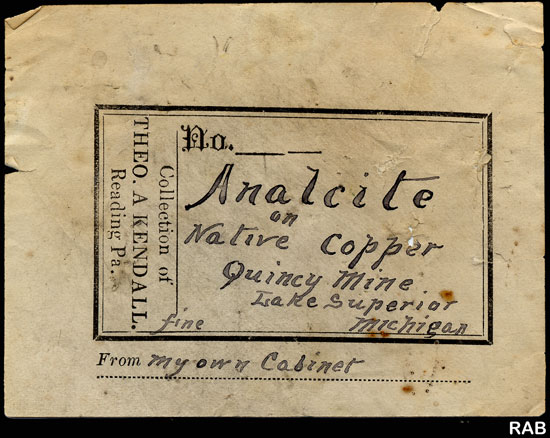 Collection of
THEO. A KENDALL.
Reading Pa.
No.
Analcite
on
Native Copper
Quincy Mine
Lake Superior
fine Michigan
From my own Cabinet
RAB